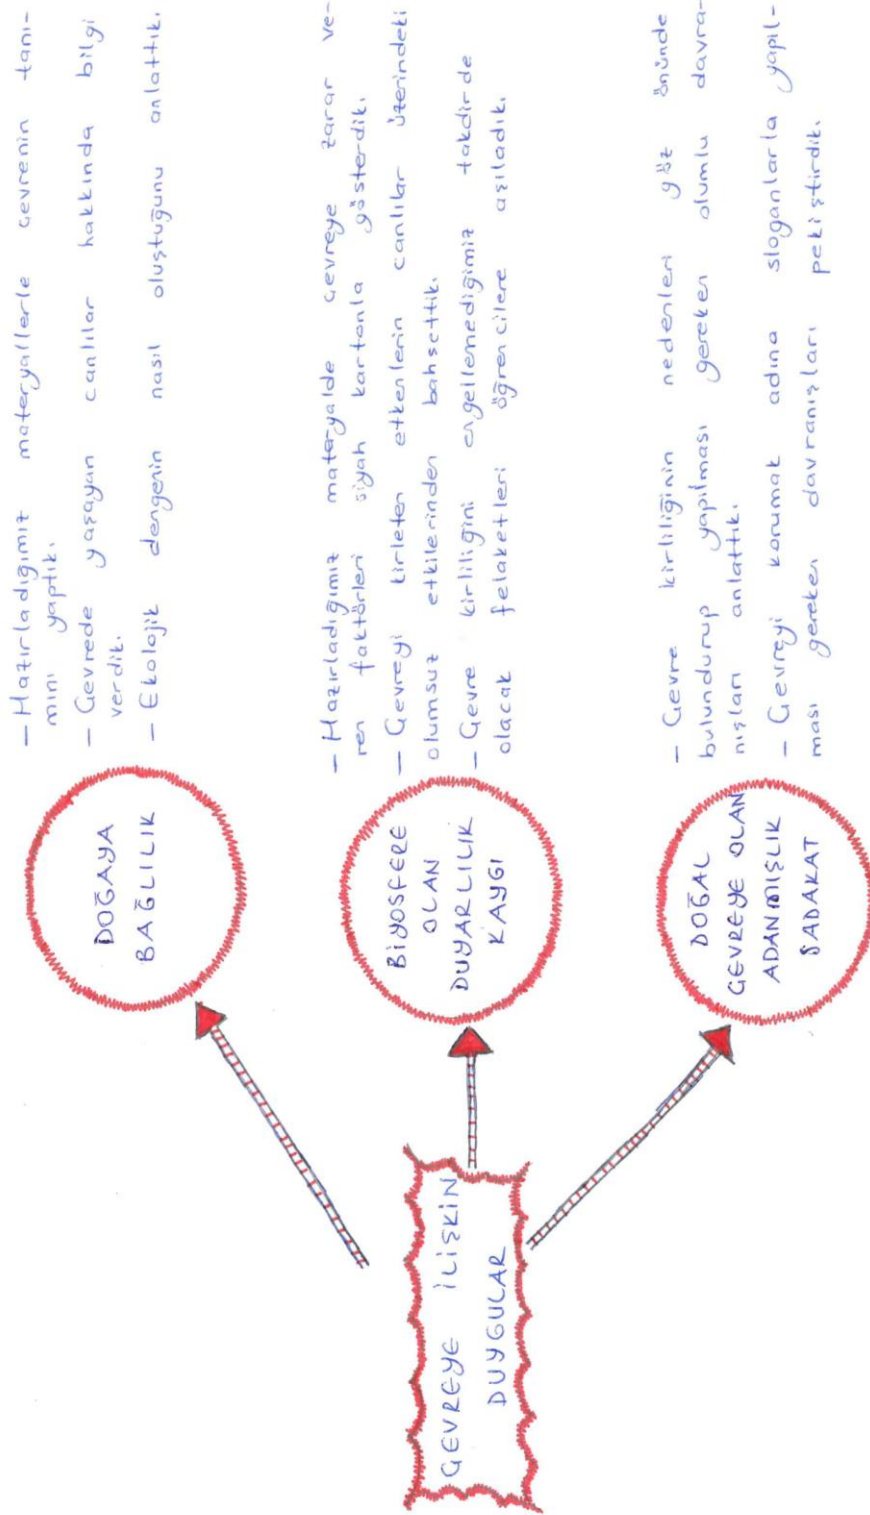 ÇEVREYE İLİŞKİN
DUYGULAR
DOĞAYA
BAĞLILIK
- Hazırladığımız materyallerle çevrenin tanı-
mını yaptık.
- Çevrede yaşayan canlılar hakkında bilgi
verdik.
- Ekolojik dengenin nasıl oluştuğunu anlattık.
BİYOSFERE
OLAN
DUYARLILIK
KAYGI
- Hazırladığımız materyalde çevreye zarar ve-
ren faktörleri siyah kartonla gösterdik.
- Çevreyi kirleten etkenlerin canlılar üzerindeki
olumsuz etkilerinden bahsettik.
- Çevre kirliliğini engellemediğimiz takdirde
olacak felaketleri öğrencilere aşıladık.
DOĞAL
ÇEVREYE OLAN
ADANMIŞLIK
SADAKAT
- Çevre kirliliğinin nedenleri göz önünde
bulundurup yapılması gereken olumlu davra-
nışları anlattık.
- Çevreyi korumak adına sloganlarla yapıl-
ması gereken davranışları pekiştirdik.